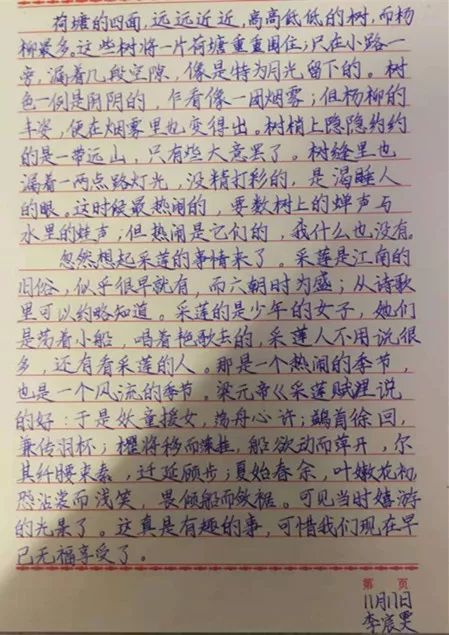 荷塘的四面,远远近近,高高低低的树,而杨
柳最多。这些树将一片荷塘重重围住;只在小路一
旁,漏着几段空隙,像是特为月光留下的。树
色一例是阴阴的,乍看像一团烟雾;但杨柳的
丰姿,便在烟雾里也变得出。树梢上隐隐约约
的是一带远山,只有些大意罢了。树缝里也
漏着一两点路灯光,没精打彩的,是渴睡人
的眼。这时候最热闹的,要数树上的蝉声与
水里的蛙声;但热闹是它们的,我什么也没有。
忽然想起采莲的事情来了。采莲是江南的
旧俗,似乎很早就有,而六朝时为盛;从诗歌
里可以约略知道。采莲的是少年的女子,她们
是荡着小船,唱着艳歌去的,采莲人不用说很
多,还有看采莲的人。那是一个热闹的季节,
也是一个风流的季节。梁元帝《采莲赋里说
的好:于是妖童援女,荡舟心许;鷁首徐回,
兼传羽杯;櫂将移而藻挂,船欲动而萍开,尔
其纤腰束素,迁延顾步;夏始春余,叶嫩花初,
恐沾裳而浅笑,畏倾船而敛裾。可见当时嬉游
的光景了。这真是有趣的事,可惜我们现在早
已无福享受了。
第 页
11月11日
李宸